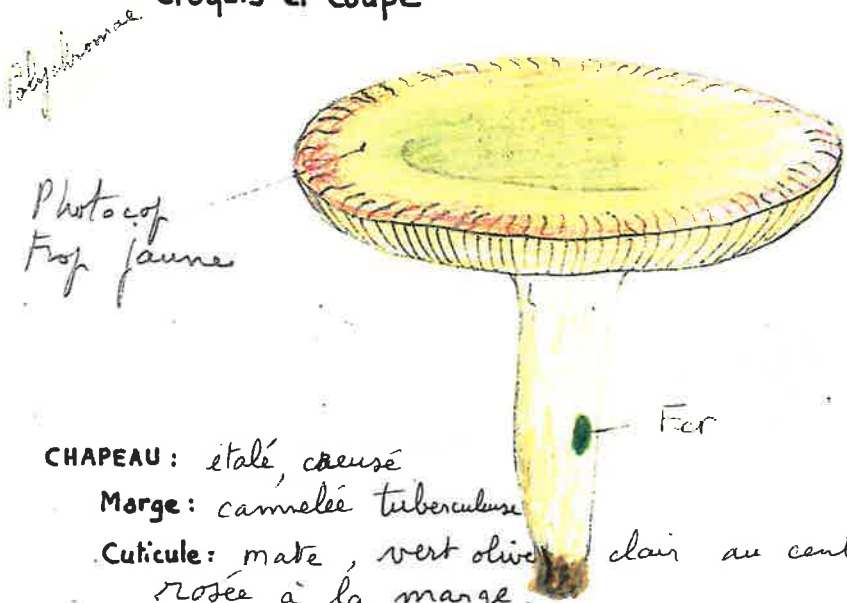 Croquis et coupe
Photocop
Trop jaune
Fer
CHAPEAU : étalé, creusé
Marge : cannelée tuberculeuse
Cuticule : mate, vert olive clair au cent
rosée à la marge